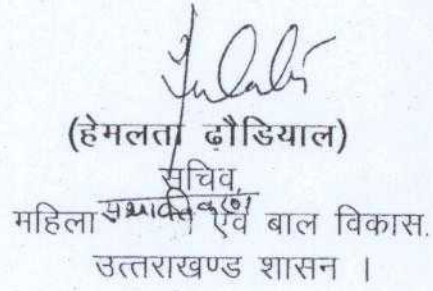 (हेमलता ढ़ौडियाल)
सचिव,
महिला सशक्तिकरण एवं बाल विकास.
उत्तराखण्ड शासन ।